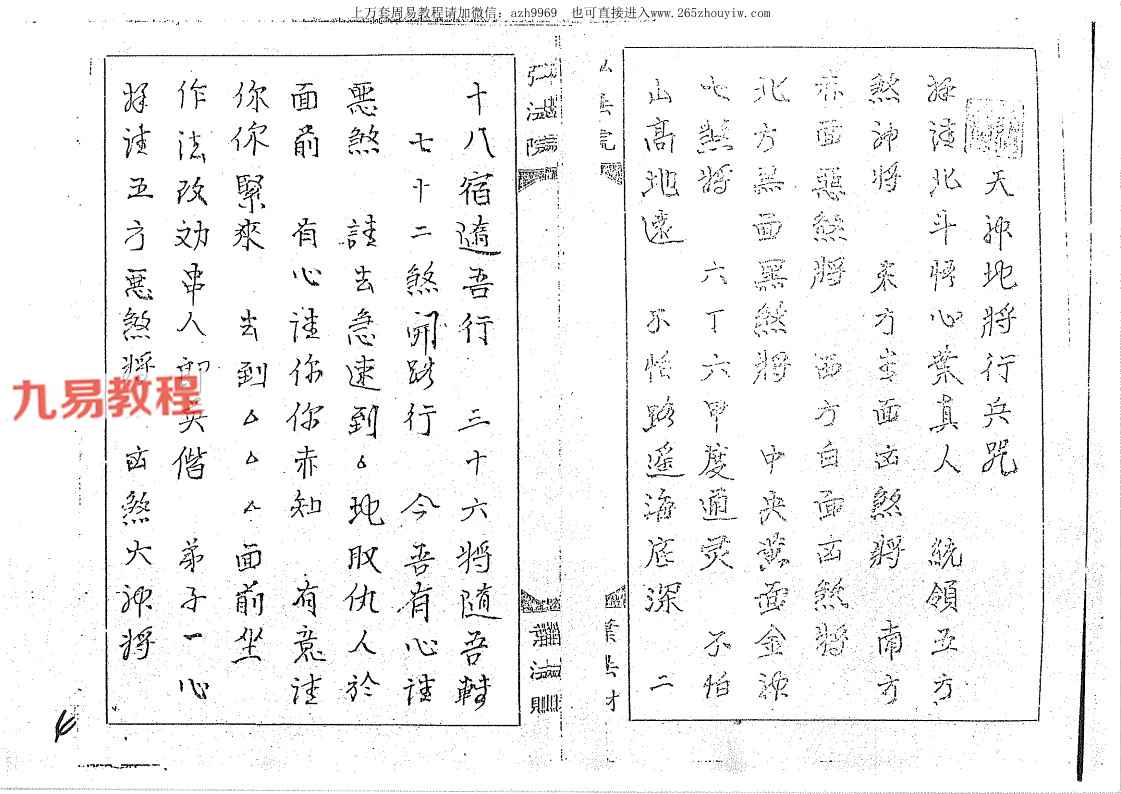 上万套周易教程请加微信：azh9969 也可直接进入www.265zhouyiw.com
天神地将行兵咒
拜请北斗悟心葉真人 統領五方
煞神将 東方青面凶煞将 南方
赤面惡煞将 西方白面凶煞将
北方黑面黑煞将 中央黄面金神
七煞将 六丁六甲度通灵 不怕
山高地遠 不怕路遥海底深 二
十八宿遶吾行 三十六将随吾轉
七十二煞開路行 今吾有心請
惡煞 請去急速到△地取仇人於
面前 有心請你你赤知 有意請
你你緊來 去到△△△面前坐
作法改効串人 弟子一心
拜請五方惡煞将 凶煞大神将
九易教程
法院
法則